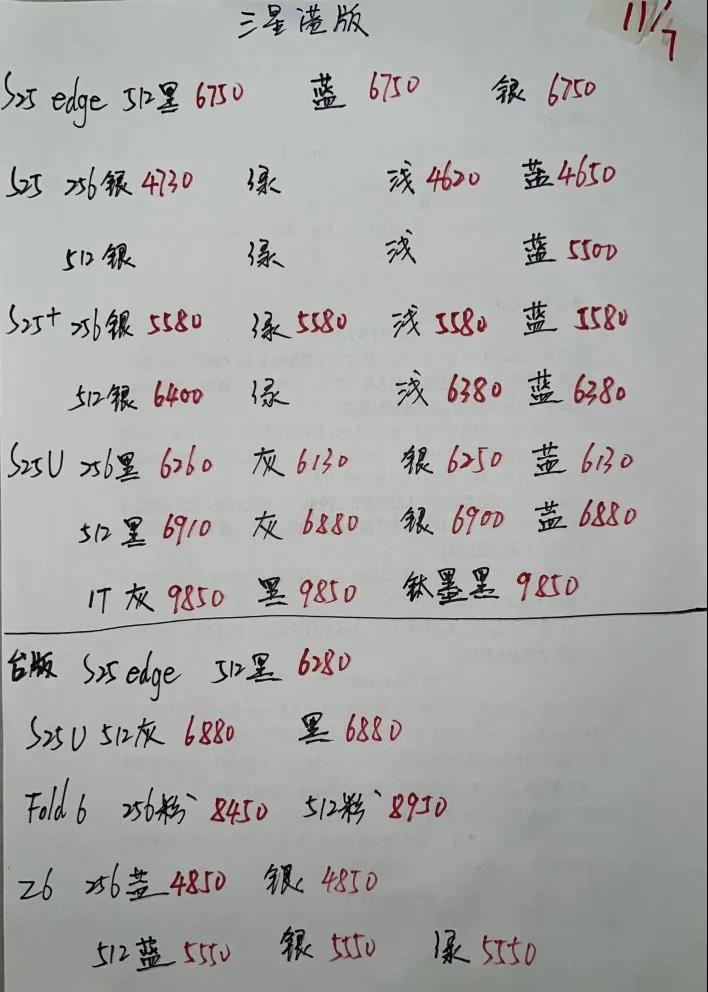 三星港版 11/7
S25 edge 512黑 6750 蓝 6750 银 6750
S25 256银 4730 绿 浅 4620 蓝 4650
512银 绿 浅 蓝 5500
S25+ 256银 5580 绿 5580 浅 5580 蓝 5580
512银 6400 绿 浅 6380 蓝 6380
S25U 256黑 6260 灰 6130 银 6250 蓝 6130
512黑 6910 灰 6880 银 6900 蓝 6880
1T 灰 9850 黑 9850 钛墨黑 9850
台版 S25 edge 512黑 6280
S25U 512灰 6880 黑 6880
Fold 6 256粉 8450 512粉 8950
Z6 256蓝 4850 银 4850
512蓝 5550 银 5550 绿 5550